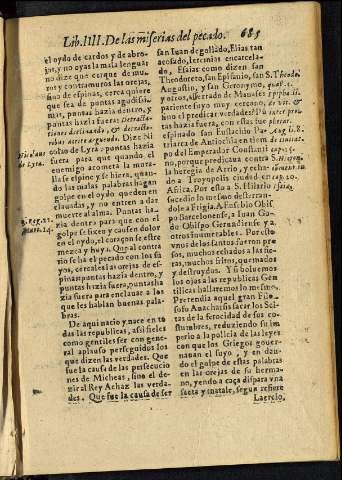 Lib.IIII. De las miserias del pecado. 685
el oydo de cardos y de abro-
jos, y no oyas la mala lengua:
no dize que cerque de mu-
ros y contramuros las orejas,
sino de espinas, cerca quiere
que sea de puntas agudissi-
mas, puntas hazia dentro, y
puntas hazia fuera
Dize Ni
Nicolaus
de Lyra.
colao de Lyra: puntas hazia
fuera para que quando el
enemigo acometa la mora-
lla se espine y se hiera, quan-
do las malas palabras hagan
golpe en el oydo queden en
clauadas, y no entren a dar
muerte al alma. Puntas ha-
zia dentro para que con el
golpe se hieo y causen dolor
en el oydo, el coraçon se entre
mezca y huya. Que al contra
rio se ha el pecado con los sa
yos, cercales las orejas de es-
pinas: puntas hazia dentro, y
puntas hazia fuera, puntas ha
zia fuera para enclauar a los
que les hablan buenas pala-
bras.
De aqui nacio y nace en to
das las republicas, assi fieles
como gentiles ser con gene-
ral aplauso perseguidos los
que dizen las verdades. Que
fue la causa de las persecucio
nes de Micheas, sino el de-
zir al Rey Achaz las verda-
des. Que fue la causa de ser
san Iuan degollado, Elias tan
acosado, Ieremias encarcela-
do, Esaias como dizen san
Theodoreto, san Epifanio, san
Augustin, y san Geronymo,
y otros, asserrado de Manases
pariente suyo muy cercano,
sino el predicar verdades?
tas hazia fuera, con estas fue
Aplinado san Eustachio Pa-
triarca de Antiochia en tiem
po del Emperador Constanti
no, porque predicaua contra
la heregia de Arrio, y echa
do a Troyapolis ciudad en
Africa. Por esto a S. Hilario
sucedio lo mesmo desterran-
dole a Frigia. A Eusebio Obis
po Barcelonense, a Iuan Go-
do Obispo Gerundiense y a
otros innumerables. Por esto
vnos de los santos fueron pre
sos, muchos echados a las fie-
ras, muchos fritos, quemados
y destruydos. Y si boluemos
los ojos a las republicas Gen
tilicas hallaremos lo mesmo.
Pretendia aquel gran File-
sofo Anacharsis sacar los Sci-
tas de la ferocidad de sus co-
stumbres, reduziendo su im-
perio a la policia de las leyes
con que los Griegos gouer-
nauan el suyo, y en dan-
do el golpe de estas palabras
en las orejas de su herma-
no, yendo a caça dispara vna
saeta y matale, segun refiere
Laercio,